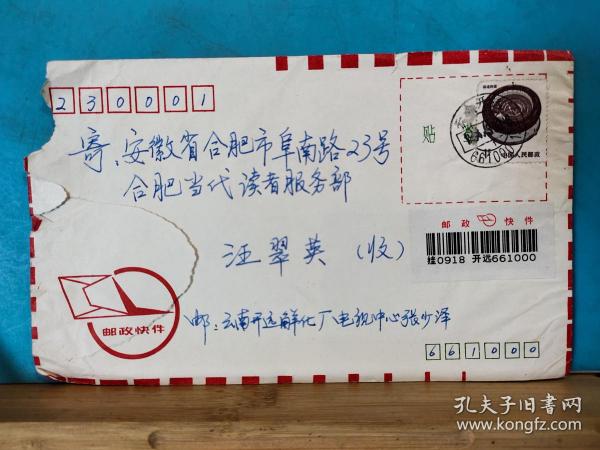 230001
寄:安徽省合肥市阜南路23号
合肥当代读者服务部
汪翠英(收)
贴
中国人民邮政
661000
邮政 快件
挂0918 开远661000
邮政快件
邮:云南开远解化厂电视中心张少泽
661000
孔夫子旧书网
www.kongfz.com